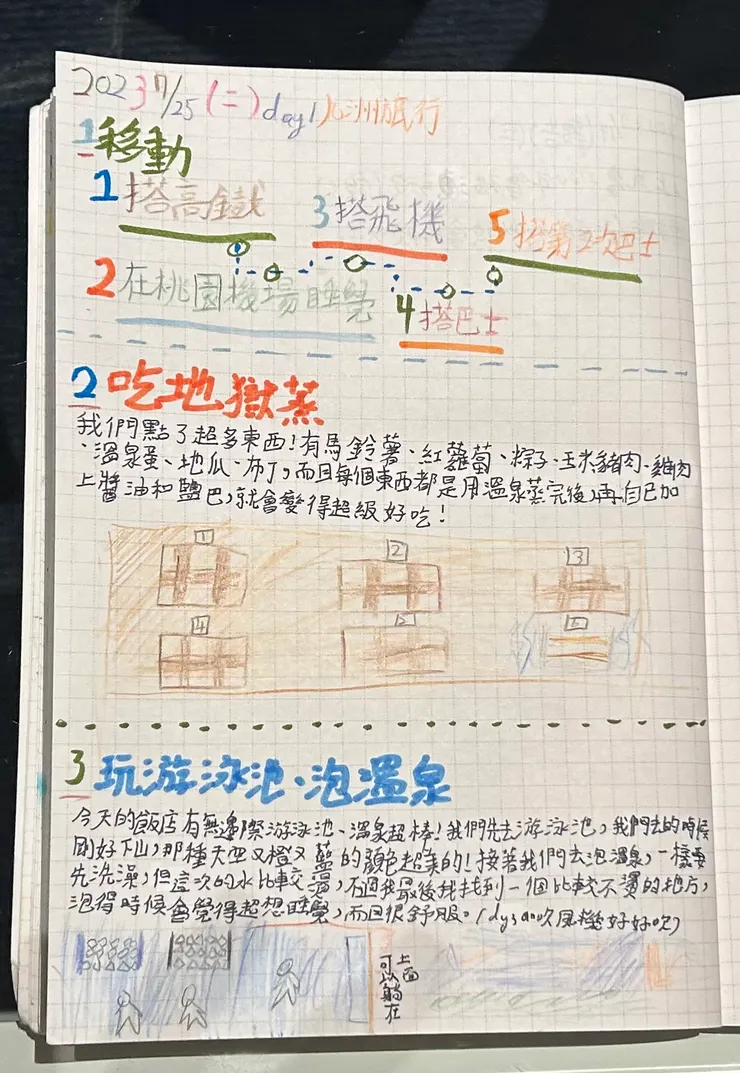 2023 7/25 (二) day1 九州旅行
1 移動
1 搭高鐵
3 搭飛機
5 搭第2次巴士
2 在桃園機場睡覺
4 搭巴士
2 吃地獄蒸
我們點了超多東西!有馬鈴薯、紅蘿蔔、粽子、玉米豬肉、雞肉
、溫泉蛋、地瓜、布丁,而且每個東西都是用溫泉蒸完後,再自己加
上醬油和鹽巴,就會變得超級好吃!
1
2
3
4
5
6
3 玩游泳池、泡溫泉
今天的飯店有無邊際游泳池、溫泉超棒!我們先去游泳池,我們去的時候
剛好下山,那種天空又橙又藍的顏色超美的!接著我們去泡溫泉,一樣要
先洗澡,但這次的水比較溫,不過我最後找到一個比較不燙的地方,
泡得時候會覺得超想睡覺,而且很舒服。(dysan吹風機好好吹)
可以躺在
上面